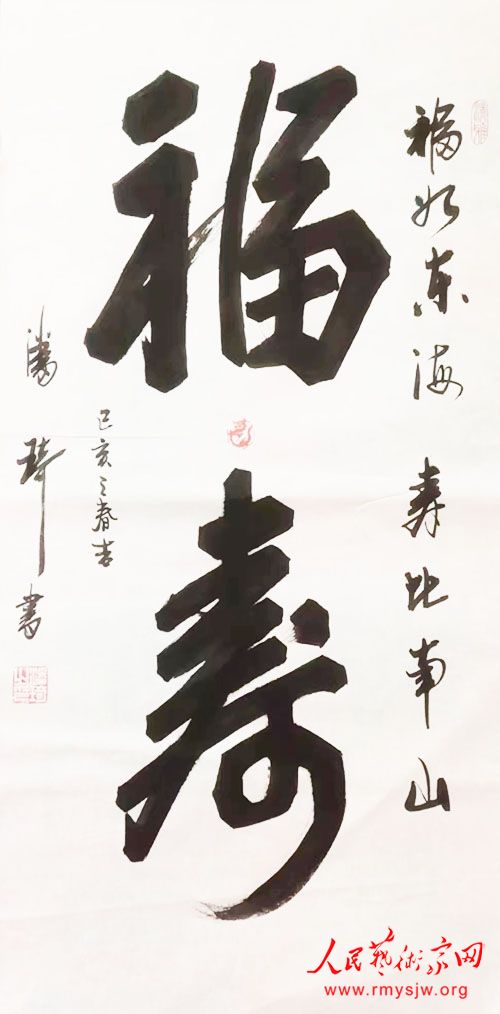 福寿
福如东海 寿比南山
己亥之春吉
书
人民艺术家网
www.rmysjw.org